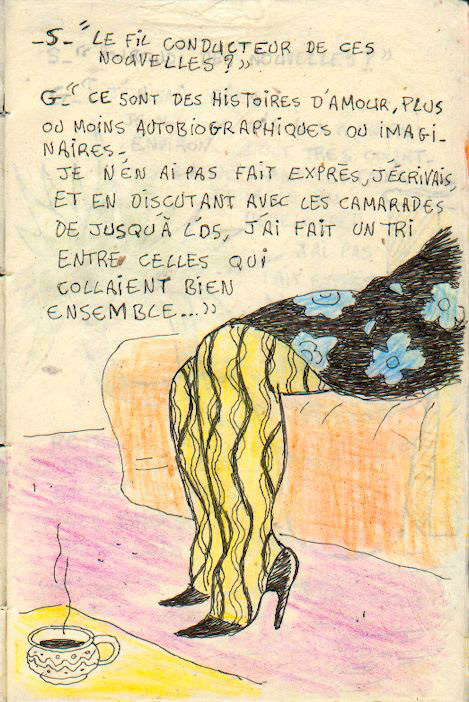 -S- "LE FIL CONDUCTEUR DE CES
NOUVELLES ?"
G-" CE SONT DES HISTOIRES D'AMOUR, PLUS
OU MOINS AUTOBIOGRAPHIQUES OU IMAGI-
NAIRES-
JE N'EN AI PAS FAIT EXPRÈS, J'ÉCRIVAIS,
ET EN DISCUTANT AVEC LES CAMARADES
DE JUSQU'À L'OS, J'AI FAIT UN TRI
ENTRE CELLES QUI
COLLAIENT BIEN
ENSEMBLE..."